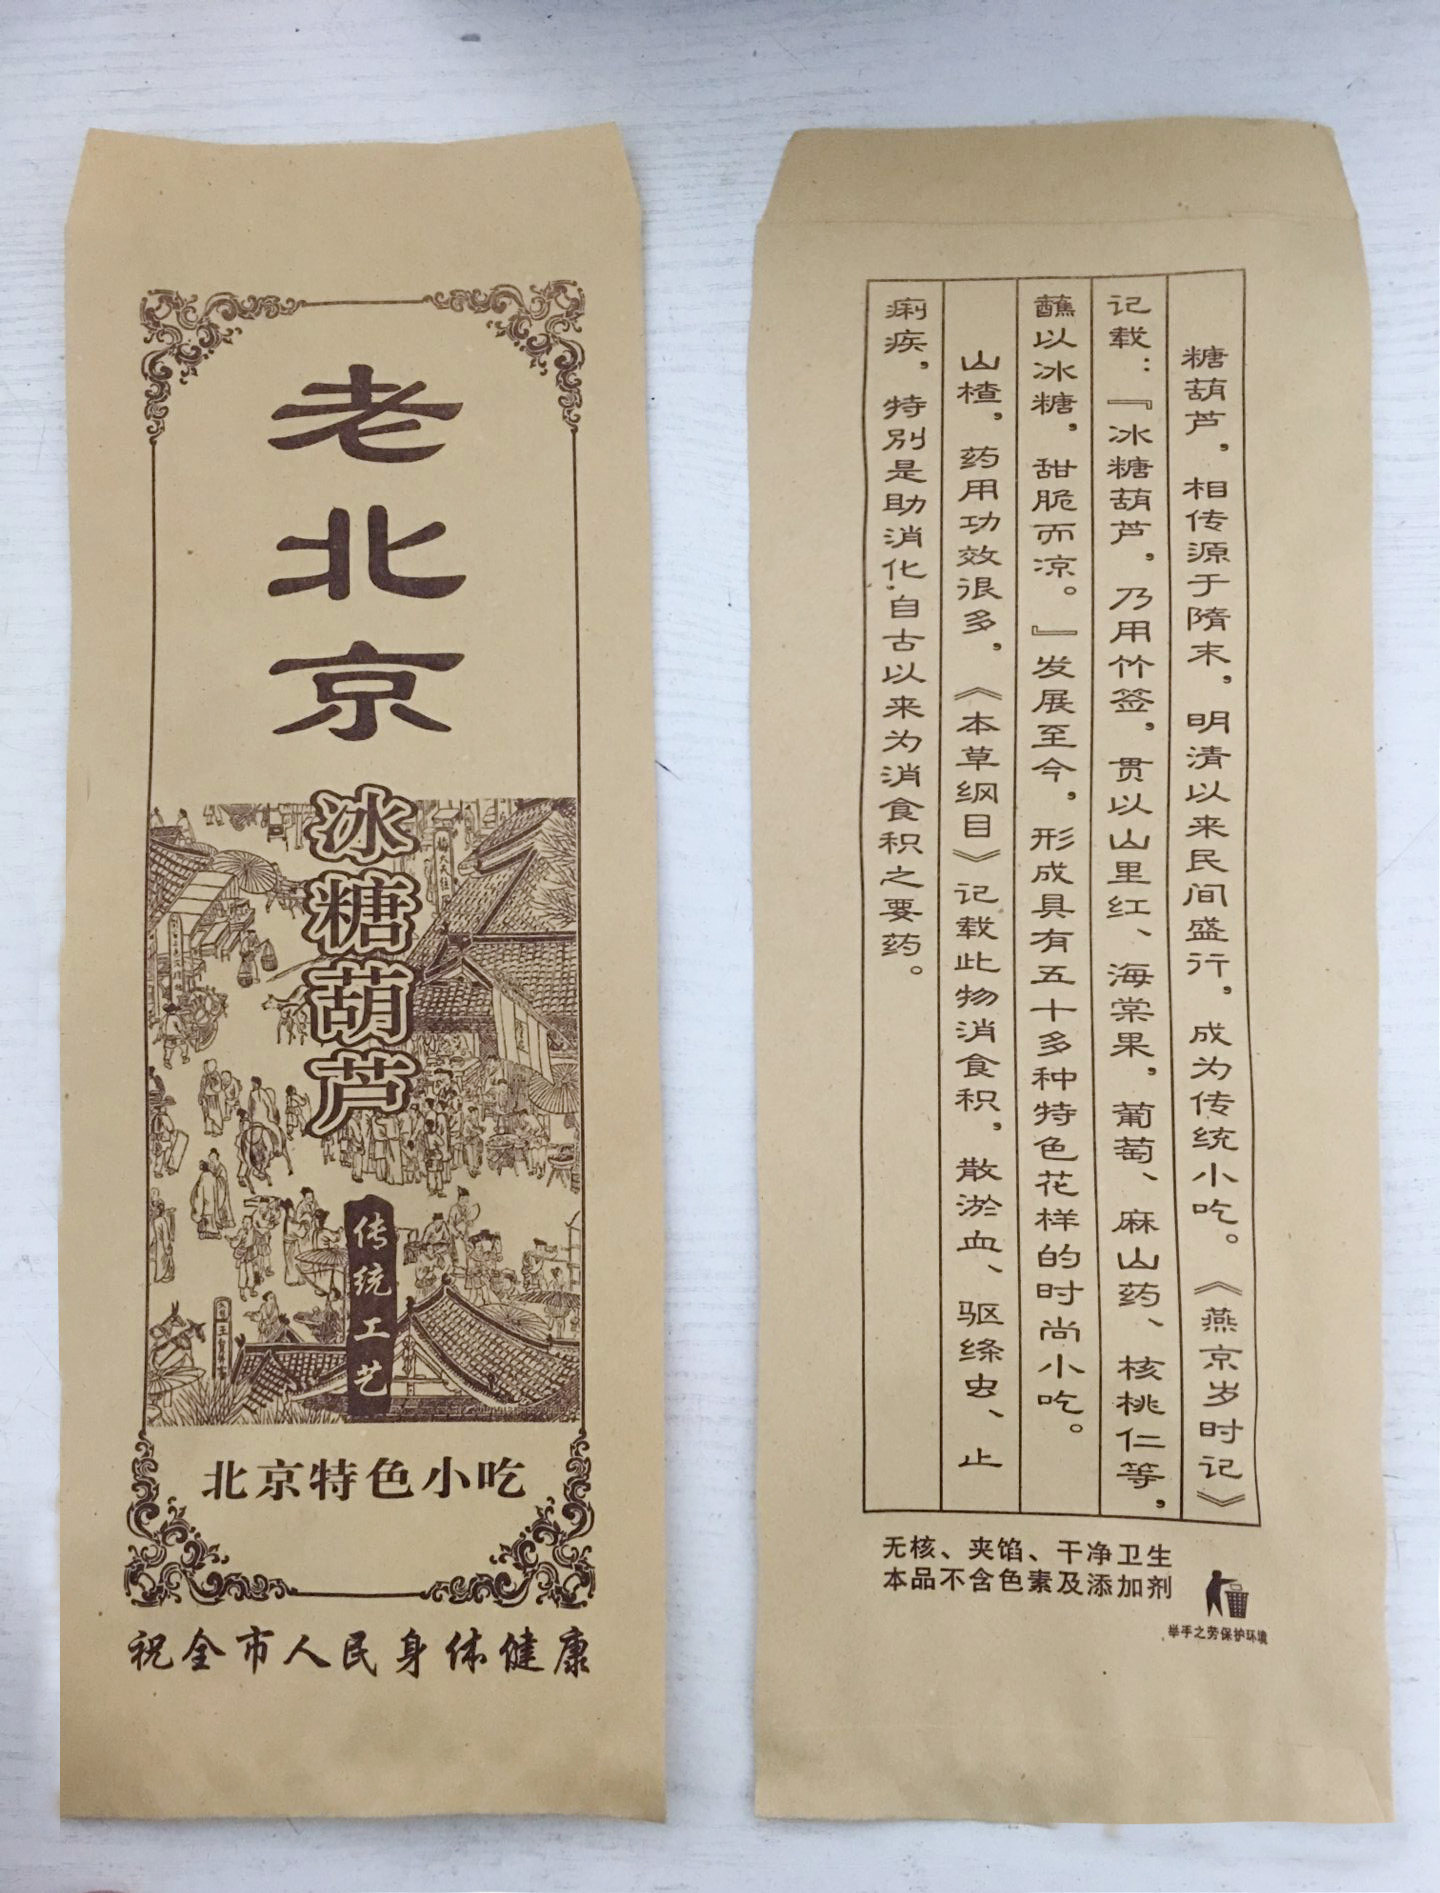 老北京
冰糖葫芦
传统工艺
北京特色小吃
祝全市人民身体健康
糖葫芦，相传源于隋末，明清以来民间盛行，成为传统小吃。《燕京岁时记》
记载：『冰糖葫芦，乃用竹签，贯以山里红、海棠果，葡萄、麻山药、核桃仁等，
蘸以冰糖，甜脆而凉。』发展至今，形成具有五十多种特色花样的时尚小吃。
山楂，药用功效很多，《本草纲目》记载此物消食积，散淤血、驱绦虫、止
痢疾，特别是助消化.自古以来为消食积之要药。
无核、夹馅、干净卫生
本品不含色素及添加剂
举手之劳保护环境